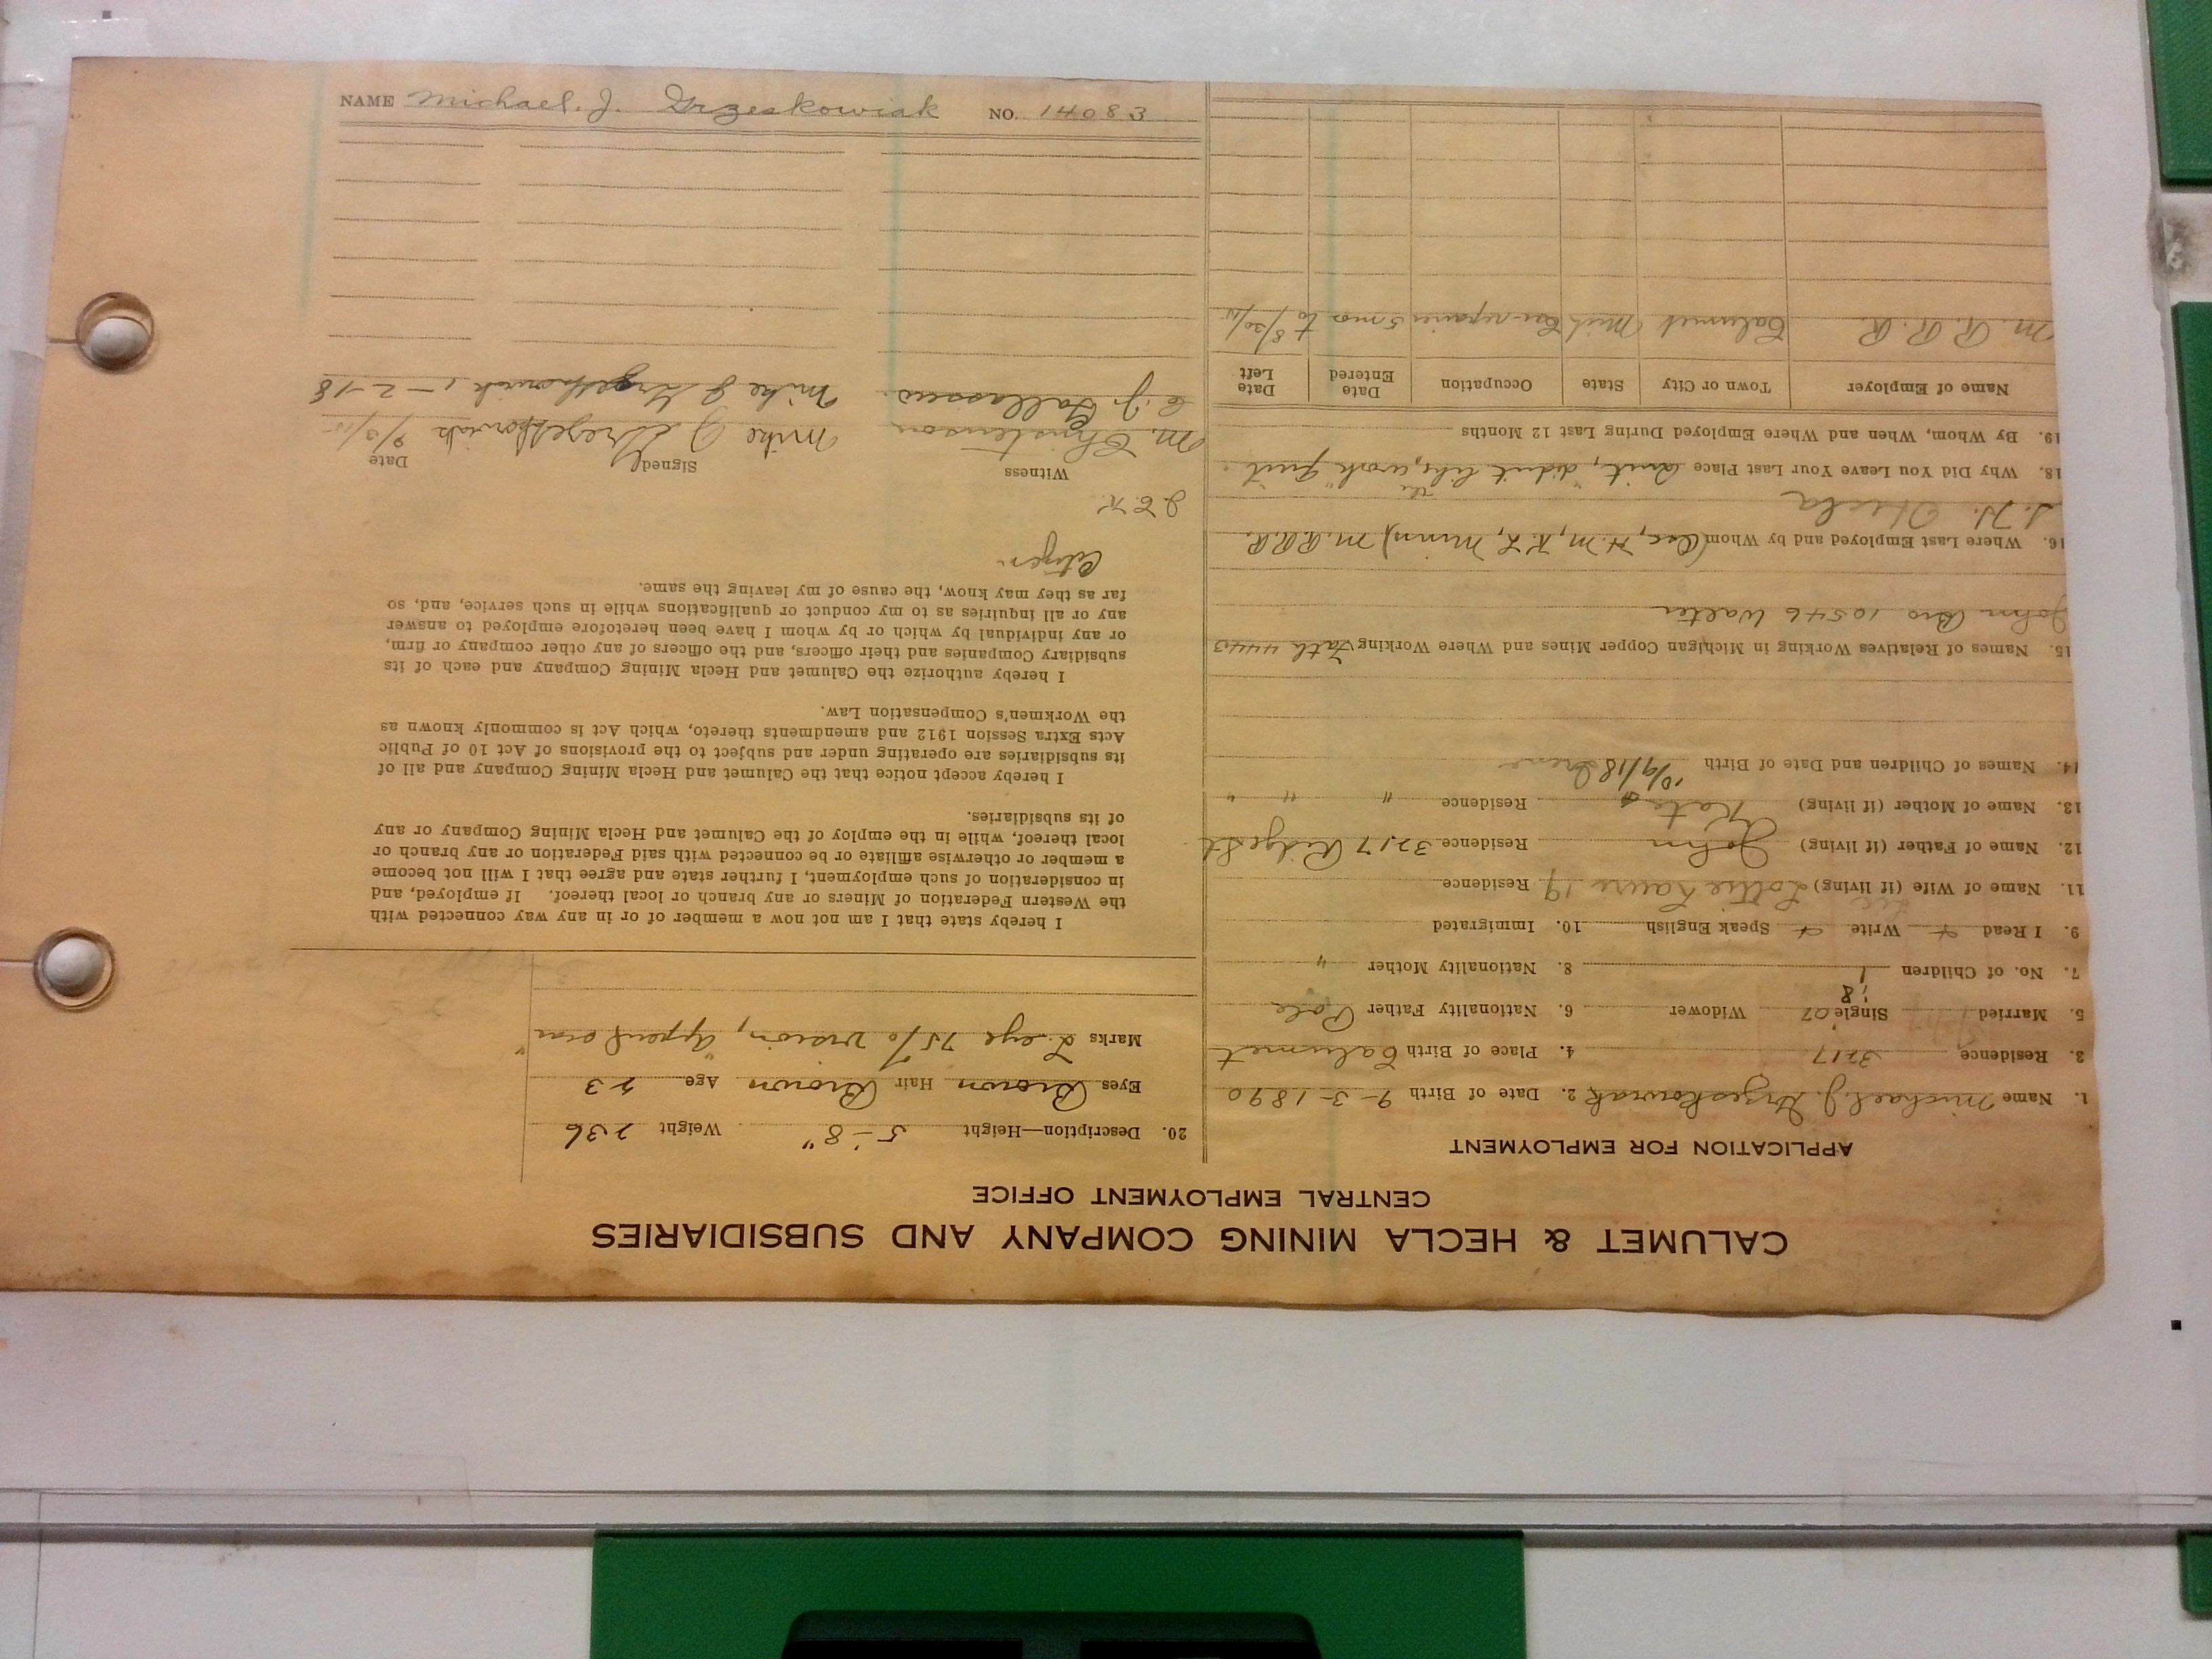 CALUMET & HECLA MINING COMPANY AND SUBSIDIARIES
CENTRAL EMPLOYMENT OFFICE
APPLICATION FOR EMPLOYMENT
1. Name Michael. J. Grzeskowiak 2. Date of Birth 9-3-1890
3. Residence 3217 4. Place of Birth Calumet
5. Married Single Widower 6. Nationality Father Pole
7. No. of Children 1 8. Nationality Mother "
9. I Read Write Speak English 10. Immigrated
11. Name of Wife (if living) Lottie 19 Residence
12. Name of Father (if living) John Residence 3217 Ridge St
13. Name of Mother (if living) Kate Residence " " "
14. Names of Children and Date of Birth 10/9/18 Irene
15. Names of Relatives Working in Michigan Copper Mines and Where Working Fath 4443
John Bro 10546 Walter
16. Where Last Employed and by Whom M.R.R.R.
S. H. Hecla
18. Why Did You Leave Your Last Place Quit, didn't like the work "Quit"
19. By Whom, When and Where Employed During Last 12 Months
Name of Employer Town or City State Occupation Date Entered Date Left
M. R. R. R. Calumet Mich Car-repairer 5 mos to 8/30/15
20. Description—Height 5-8" Weight 236
Eyes Brown Hair Brown Age 23
Marks L. eye 75% vision, "Appen Scar"
I hereby state that I am not now a member of or in any way connected with
the Western Federation of Miners or any branch or local thereof. If employed, and
in consideration of such employment, I further state and agree that I will not become
a member or otherwise affiliate or be connected with said Federation or any branch or
local thereof, while in the employ of the Calumet and Hecla Mining Company or any
of its subsidiaries.
I hereby accept notice that the Calumet and Hecla Mining Company and all of
its subsidiaries are operating under and subject to the provisions of Act 10 of Public
Acts Extra Session 1912 and amendments thereto, which Act is commonly known as
the Workmen's Compensation Law.
I hereby authorize the Calumet and Hecla Mining Company and each of its
subsidiary Companies and their officers, and the officers of any other company or firm,
or any individual by which or by whom I have been heretofore employed to answer
any or all inquiries as to my conduct or qualifications while in such service, and, so
far as they may know, the cause of my leaving the same.
Citizen
Witness Signed Date
M. Christenson Mike J Grzeskowiak 9/3/15
Mike J Grzeskowiak 1-2-18
NAME Michael. J. Grzeskowiak NO. 14083